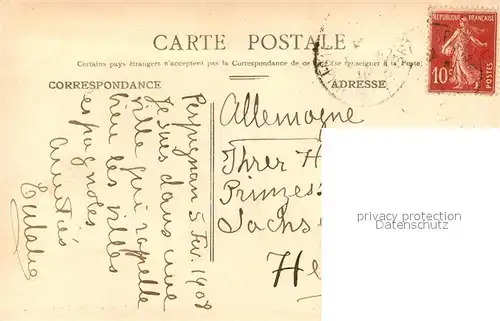 CARTE POSTALE
Certains pays étrangers n'acceptent pas la Correspondance de ce côté (Se renseigner à la Poste)
CORRESPONDANCE
ADRESSE
RÉPUBLIQUE FRANÇAISE
10c
POSTES
Perpignan 5 Fev. 1908
Je suis dans une
ville qui rappelle
bien les villes
espagnoles
Amitiés
Eulalie
Allemagne
Ihrer H
Prinzess
Sachs
He
privacy protection
Datenschutz